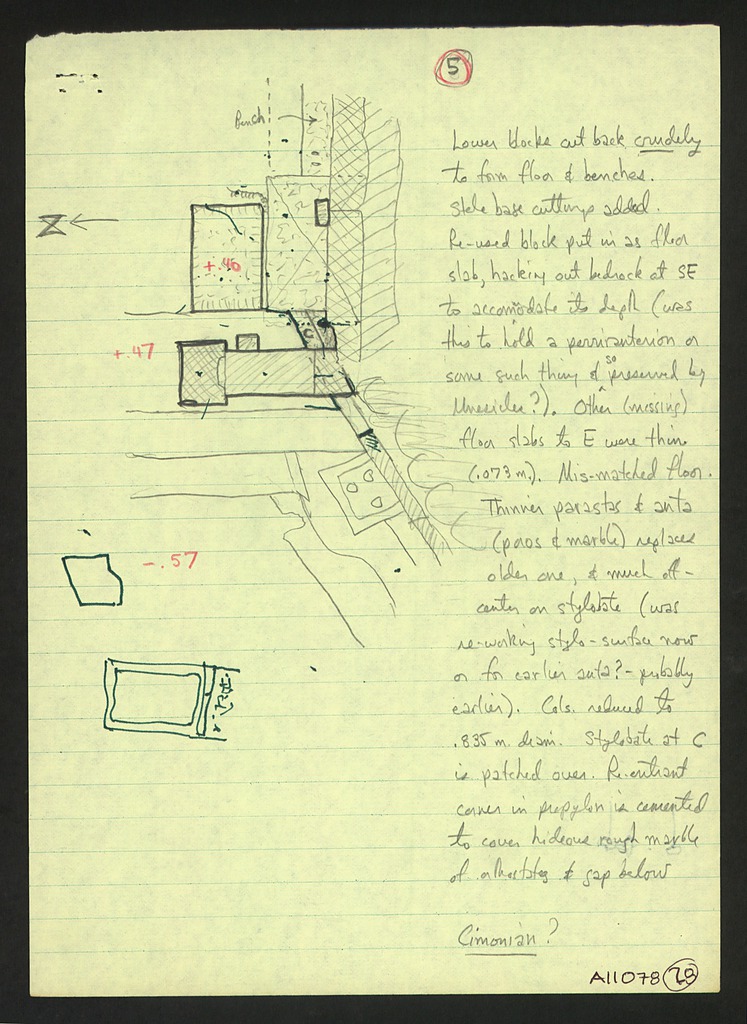 5
Bench
Z
+.46
+.47
-.57
Lower blocks cut back crudely
to form floor & benches.
Stele base cuttings added.
Re-used block put in as floor
slab, hacking out bedrock at SE
to accomodate its depth (was
this to hold a perirranterion or
some such thing & so preserved by
Mnesicles?). Other (missing)
floor slabs to E were thin
(.073 m). Mis-matched floor.
Thinner parastas & anta
(poros & marble) replaces
older one, & much off-
center on stylobate (was
re-working stylo-surface now
or for earlier anta? - probably
earlier). Cols. reduced to
.835 m. diam. Stylobate at C
is patched over. Re-entrant
corner in propylon is cemented
to cover hideous rough marble
of orthostates & gap below
Cimonian?
A11078 28